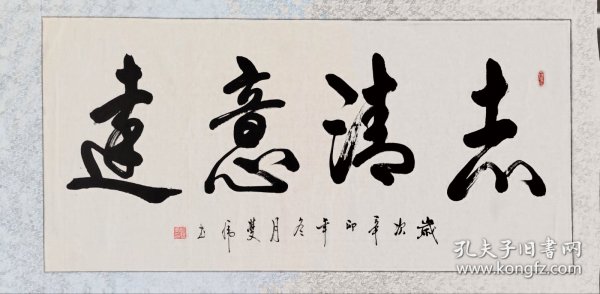 志清意達
歲次辛卯年冬月雙虎书
孔夫子旧书网
www.kongfz.com